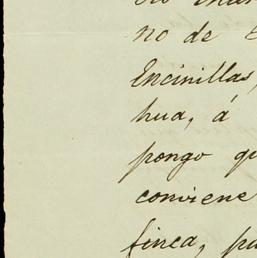 no de
Encinillas,
hua, á
pongo qu
conviene
finca, pa